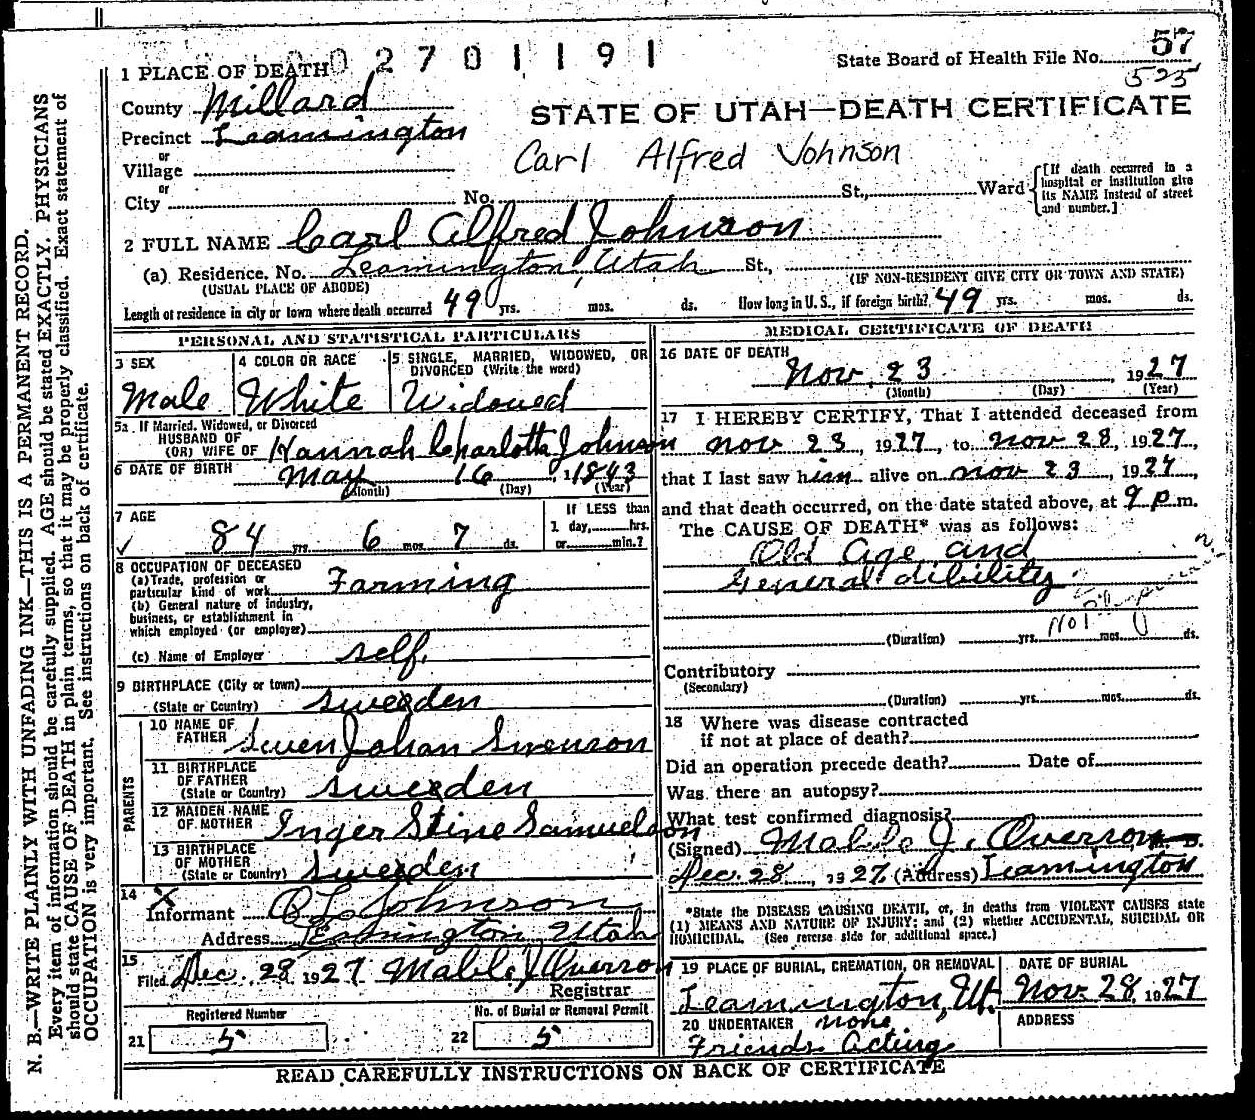 002701191
State Board of Health File No. 57
525
1 PLACE OF DEATH
County Millard
STATE OF UTAH—DEATH CERTIFICATE
Precinct Leamington
Carl Alfred Johnson
or
Village
or
City No. St., Ward
[If death occurred in a hospital or institution give its NAME instead of street and number.]
2 FULL NAME Carl Alfred Johnson
(a) Residence. No. Leamington, Utah St.,
(USUAL PLACE OF ABODE) (IF NON-RESIDENT GIVE CITY OR TOWN AND STATE)
Length of residence in city or town where death occurred 49 yrs. mos. ds. How long in U. S., if foreign birth? 49 yrs. mos. ds.
PERSONAL AND STATISTICAL PARTICULARS
3 SEX
Male
4 COLOR OR RACE
White
5 SINGLE, MARRIED, WIDOWED, OR DIVORCED (Write the word)
Widoued
5a. If Married, Widowed, or Divorced
HUSBAND OF
(OR) WIFE OF Hannah Charlotta Johnson
6 DATE OF BIRTH May 16, 1843
(Month) (Day) (Year)
7 AGE
✓ 84 yrs. 6 mos. 7 ds.
If LESS than
1 day, hrs.
or min.?
8 OCCUPATION OF DECEASED
(a) Trade, profession or
particular kind of work Farming
(b) General nature of industry,
business, or establishment in
which employed (or employer)
(c) Name of Employer self.
9 BIRTHPLACE (City or town)
(State or Country) Sweeden
PARENTS
10 NAME OF
FATHER Swen Johan Swenson
11 BIRTHPLACE
OF FATHER
(State or Country) Sweeden
12 MAIDEN NAME
OF MOTHER Inger Stine Samuelson
13 BIRTHPLACE
OF MOTHER
(State or Country) Sweeden
14 X
Informant Johnson
Address Leamington, Utah
15
Filed Dec. 28 1927 Mable J Overson
Registrar
Registered Number
21 5
No. of Burial or Removal Permit
22 5
MEDICAL CERTIFICATE OF DEATH
16 DATE OF DEATH
Nov. 23, 1927
(Month) (Day) (Year)
17 I HEREBY CERTIFY, That I attended deceased from
Nov 23 1927, to Nov 28, 1927,
that I last saw him alive on Nov 23, 1927,
and that death occurred, on the date stated above, at 9 p.m.
The CAUSE OF DEATH* was as follows:
Old Age and
General dibility
Not
(Duration) yrs. mos. ds.
Contributory
(Secondary)
(Duration) yrs. mos. ds.
18 Where was disease contracted
if not at place of death?
Did an operation precede death? Date of
Was there an autopsy?
What test confirmed diagnosis?
(Signed) Mable J. Overson M. D.
Dec. 28, 1927 (Address) Leamington
*State the DISEASE CAUSING DEATH, or, in deaths from VIOLENT CAUSES state
(1) MEANS AND NATURE OF INJURY; and (2) whether ACCIDENTAL, SUICIDAL OR
HOMICIDAL. (See reverse side for additional space.)
19 PLACE OF BURIAL, CREMATION, OR REMOVAL
Leamington, Ut.
DATE OF BURIAL
Nov. 28 1927
20 UNDERTAKER none
Friends Acting
ADDRESS
READ CAREFULLY INSTRUCTIONS ON BACK OF CERTIFICATE
N. B.—WRITE PLAINLY WITH UNFADING INK—THIS IS A PERMANENT RECORD.
Every item of information should be carefully supplied. AGE should be stated EXACTLY. PHYSICIANS
should state CAUSE OF DEATH in plain terms, so that it may be properly classified. Exact statement of
OCCUPATION is very important. See instructions on back of certificate.